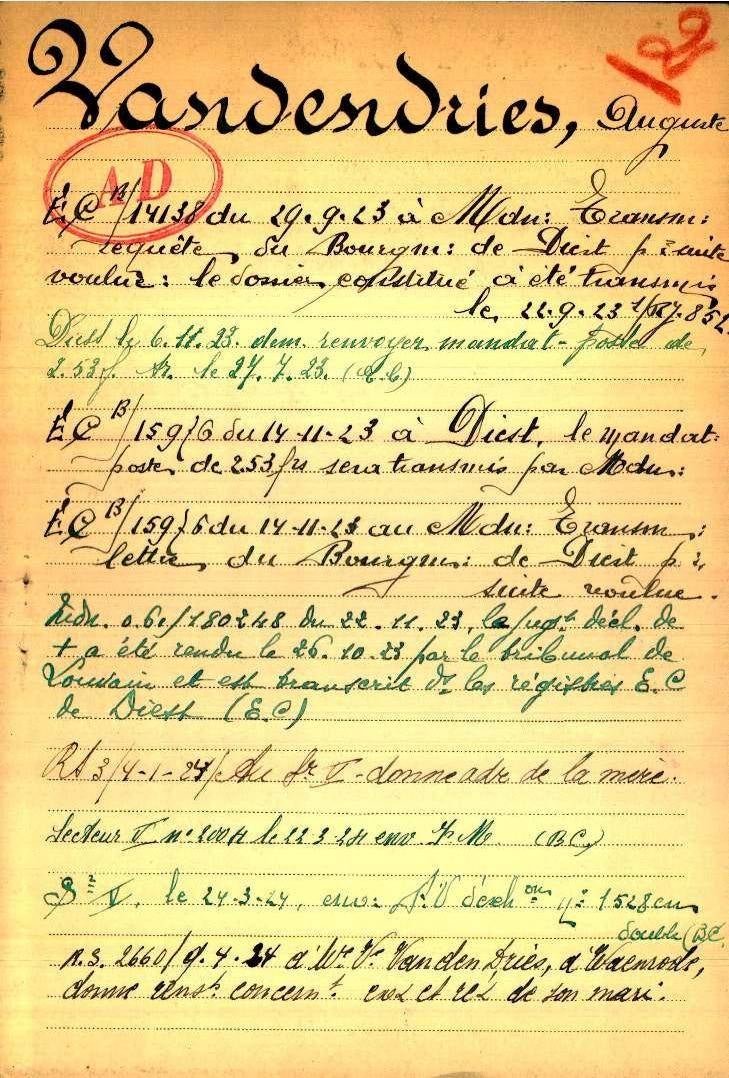 122
Vandendries, Auguste
AD
EC B/14138 du 29.9.23 à Mdn: Transm:
requête du Bourgm: de Diest pr suite
voulue: le dossier constitué a été transmis
le 22.9.23
Diest le 6.11.23. dem. renvoyer mandat-poste de
2.53 f. tr. le 27.7.23. (E.C)
EC B/15976 du 14-11-23 à Diest, le mandat-
poste de 2.53 frs sera transmis par Mdn:
EC B/15975 du 14-11-23 au Mdn: Transm:
lettre du Bourgm: de Diest pr
suite voulue.
Mdn. 0.6./180248 du 22.11.23, le jugt décl. de
+ a été rendu le 26.10.23 par le tribunal de
Louvain et est transcrit ds les régistres E.C
de Diest (E.C)
RS 3/4-1-24/ Au Sr V - donne adr de la mère.
Secteur V n° 2004 le 22 3 24 env. P.V. (B.C.)
Sr V, le 24-3-24, env: P.V d'exhon no 1528 en
double (B.C.
R.S. 2660/9.4.24 à We Ve Van den Driès, à Waenrode,
donne renst concernt exh et réh de son mari.